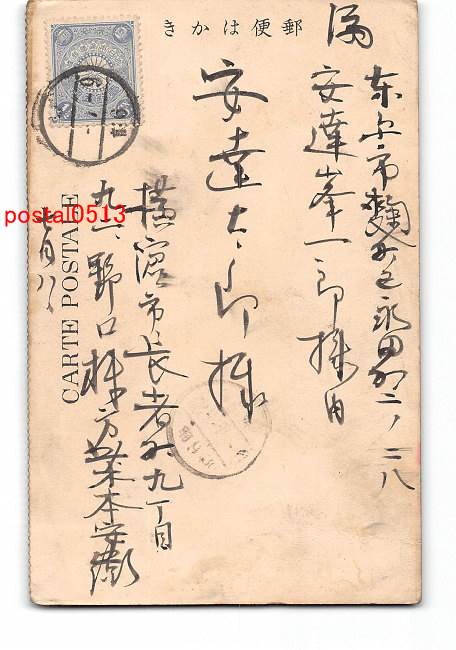 郵便はかき
満
東京市麹町区永田町二ノ二八
安達峯一郎様内
安達太郎様
横濱市長者町九丁目
九一、野口
方
本安衛
七月八
CARTE POSTALE
postal0513